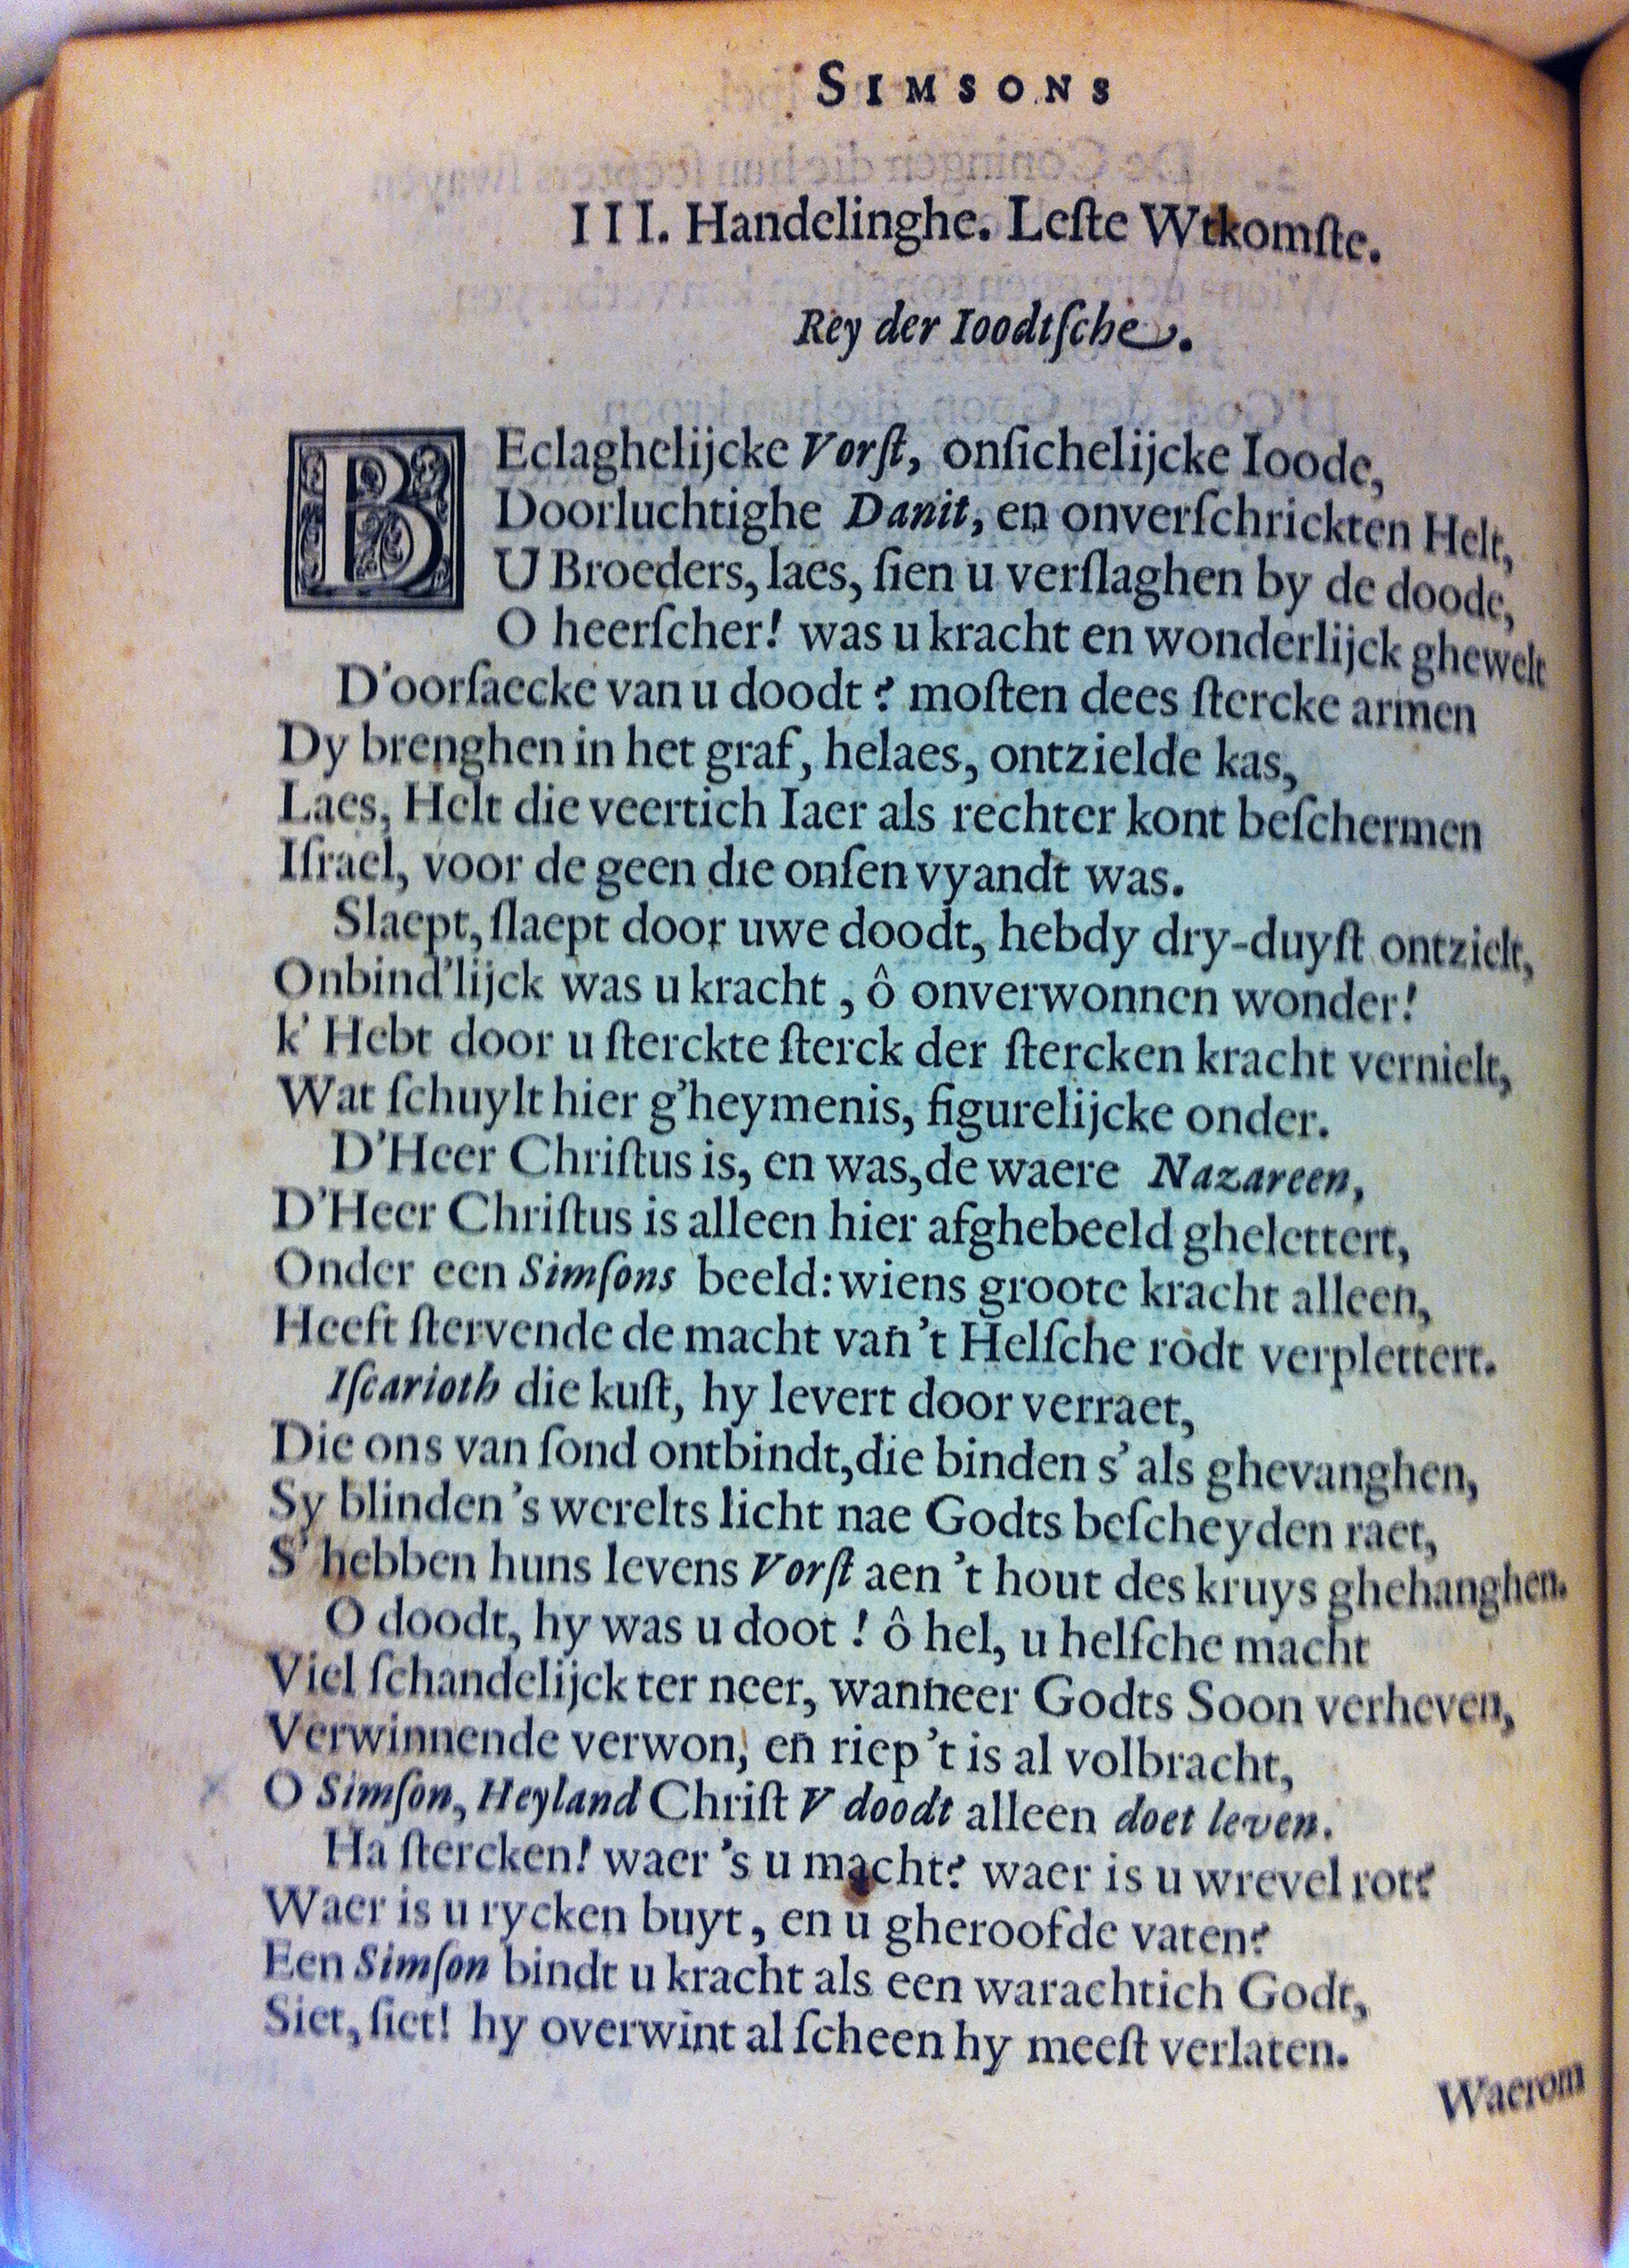 SIMSONS
III. Handelinghe. Leſte Wtkomſte.
Rey der Ioodtſche.
BEclaghelijcke Vorſt, onſichelijcke Ioode,
Doorluchtighe Danit, en onverſchrickten Helt,
U Broeders, laes, ſien u verſlaghen by de doode,
O heerſcher! was u kracht en wonderlijck ghewelt
D'oorſaecke van u doodt? moſten dees ſtercke armen
Dy brenghen in het graf, helaes, ontzielde kas,
Laes, Helt die veertich Iaer als rechter kont beſchermen
Iſrael, voor de geen die onſen vyandt was.
Slaept, ſlaept door uwe doodt, hebdy dry-duyſt ontzielt,
Onbind'lijck was u kracht, ô onverwonnen wonder!
k' Hebt door u ſterckte ſterck der ſtercken kracht vernielt,
Wat ſchuylt hier g'heymenis, figurelijcke onder.
D'Heer Chriſtus is, en was, de waere Nazareen,
D'Heer Chriſtus is alleen hier afghebeeld ghelettert,
Onder een Simſons beeld: wiens groote kracht alleen,
Heeft ſtervende de macht van't Helſche rodt verplettert.
Iſcarioth die kuſt, hy levert door verraet,
Die ons van ſond ontbindt, die binden s' als ghevanghen,
Sy blinden 's werelts licht nae Godts beſcheyden raet,
S' hebben huns levens Vorſt aen 't hout des kruys ghehanghen.
O doodt, hy was u doot! ô hel, u helſche macht
Viel ſchandelijck ter neer, wanneer Godts Soon verheven,
Verwinnende verwon, en̄ riep 't is al volbracht,
O Simſon, Heyland Chriſt V doodt alleen doet leven.
Ha ſtercken! waer 's u macht? waer is u wrevel rot?
Waer is u rycken buyt, en u gheroofde vaten?
Een Simſon bindt u kracht als een warachtich Godt,
Siet, ſiet! hy overwint al ſcheen hy meeſt verlaten.
Waerom